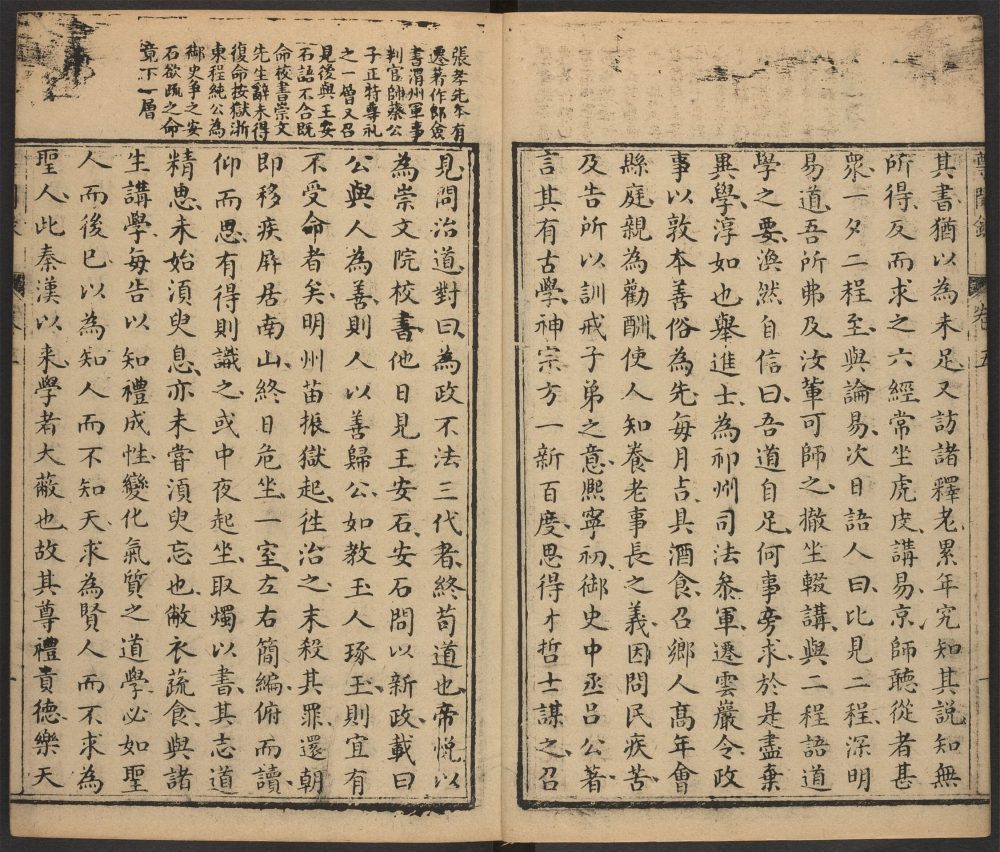 尊聞錄 卷五
其書猶以為未足又訪諸釋老累年究知其說知無
所得反而求之六經常坐虎皮講易京師聽從者甚
眾一夕二程至與論易次日語人曰比見二程深明
易道吾所弗及汝軰可師之撤坐輟講與二程語道
學之要渙然自信曰吾道自足何事旁求於是盡棄
異學淳如也舉進士為祁州司法參軍遷雲巖令政
事以敦本善俗為先每月吉具酒食召鄉人高年會
縣庭親為勸酬使人知養老事長之義因問民疾苦
及告所以訓戒子弟之意熙寧初御史中丞呂公著
言其有古學神宗方一新百度思得才哲士謀之召
張孝先本有
遷著作郎僉
書渭州軍事
判官師蔡公
子正特尊礼
之一僧又召
見後與王安
石語不合既
命校書崇文
先生辭未得
復命按獄浙
東程純公為
御史爭之安
石欲疏之命
竟下一層
見問治道對曰為政不法三代者終苟道也帝悅以
為崇文院校書他日見王安石安石問以新政載曰
公與人為善則人以善歸公如教玉人琢玉則宜有
不受命者矣明州苗振獄起往治之末殺其罪還朝
即移疾屏居南山終日危坐一室左右簡編俯而讀
仰而思有得則識之或中夜起坐取燭以書其志道
精思未始須臾息亦未嘗須臾忘也敝衣蔬食與諸
生講學每告以知禮成性變化氣質之道學必如聖
人而後已以為知人而不知天求為賢人而不求為
聖人此秦漢以来學者大蔽也故其尊禮貴德樂天